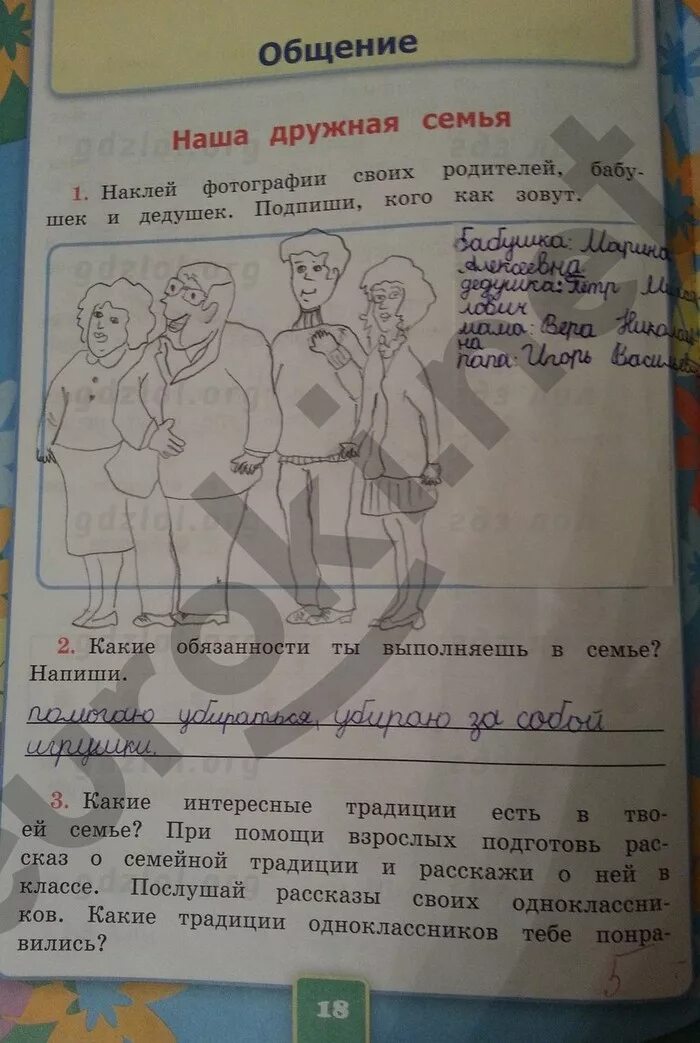 Общение
Наша дружная семья
1. Наклей фотографии своих родителей, бабу-
шек и дедушек. Подпиши, кого как зовут.
бабушка: Марина
Алексеевна
дедушка: Пётр
лович
мама: Вера Николаев
на
папа: Игорь Василье
2. Какие обязанности ты выполняешь в семье?
Напиши.
помогаю убираться, убираю за собой
игрушки.
3. Какие интересные традиции есть в тво-
ей семье? При помощи взрослых подготовь рас-
сказ о семейной традиции и расскажи о ней в
классе. Послушай рассказы своих одноклассни-
ков. Какие традиции одноклассников тебе понра-
вились?
5
18
euroki.net
gdzlol.org